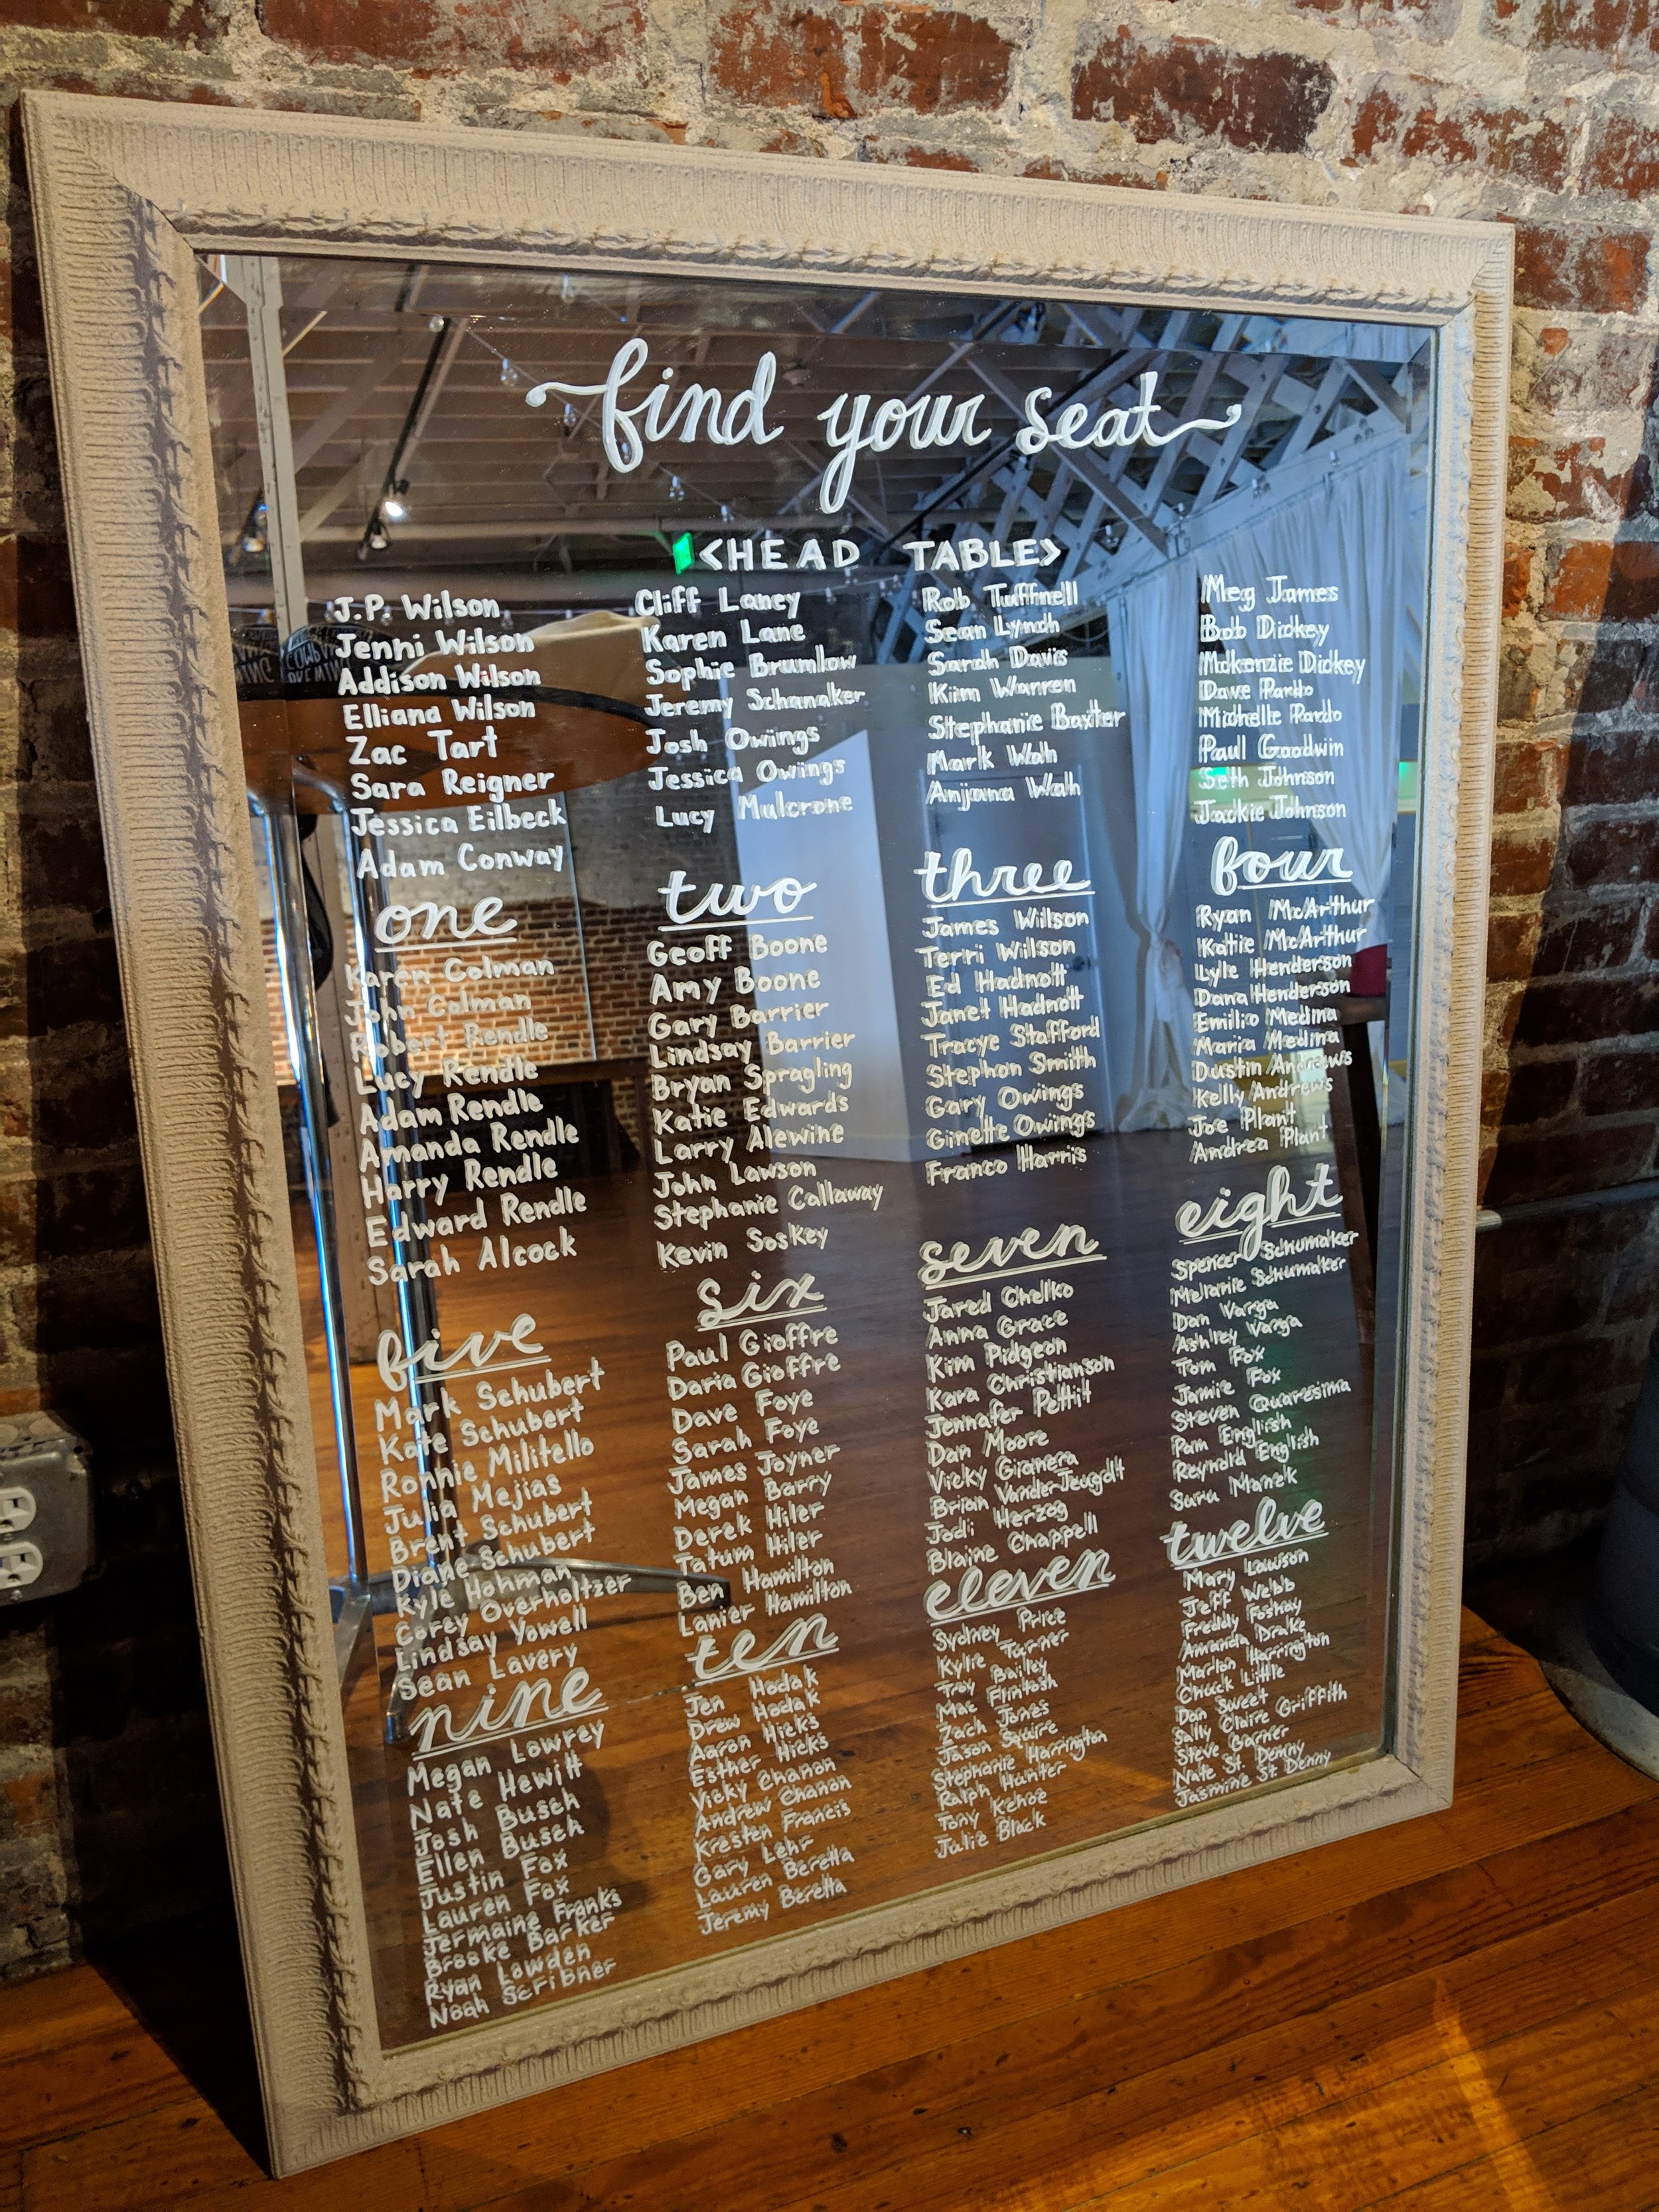 find your seat
<HEAD TABLE>
J.P. Wilson
Jenni Wilson
Addison Wilson
Elliana Wilson
Zac Tart
Sara Reigner
Jessica Eilbeck
Adam Conway
Cliff Laney
Karen Lane
Sophie Brumlow
Jeremy Schamaker
Josh Owings
Jessica Owings
Lucy Mulcrone
Rob Tuffnell
Sean Lynch
Sarah Davis
Kim Warren
Stephanie Baxter
Mark Wah
Anjana Wah
Meg James
Bob Dickey
Mckenzie Dickey
Dave Pardo
Michelle Pardo
Paul Goodwin
Seth Johnson
Jackie Johnson
one
Karen Colman
John Colman
Robert Rendle
Lucy Rendle
Adam Rendle
Amanda Rendle
Harry Rendle
Edward Rendle
Sarah Alcock
two
Geoff Boone
Amy Boone
Gary Barrier
Lindsay Barrier
Bryan Spragling
Katie Edwards
Larry Alewine
John Lawson
Stephanie Callaway
Kevin Soskey
three
James Wilson
Terri Wilson
Ed Hadnott
Janet Hadnott
Tracye Stafford
Stephon Smith
Gary Owings
Ginette Owings
Franco Harris
four
Ryan McArthur
Katie McArthur
Lyle Henderson
Dana Henderson
Emilio Medina
Maria Medina
Dustin Andrews
Kelly Andrews
Joe Plant
Andrea Plant
five
Mark Schubert
Kate Schubert
Ronnie Militello
Julia Mejias
Brent Schubert
Diane Schubert
Kyle Hohman
Corey Overholtzer
Lindsay Yowell
Sean Lavery
six
Paul Gioffre
Daria Gioffre
Dave Foye
Sarah Foye
James Joyner
Megan Barry
Derek Hiler
Tatum Hiler
Ben Hamilton
Lanier Hamilton
seven
Jared Chelko
Anna Grace
Kim Pidgeon
Kara Christianson
Jennafer Pettit
Dan Moore
Vicky Gianera
Brian VanderJeugdt
Jodi Herzog
Blaine Chappell
eight
Spencer Schumaker
Melanie Schumaker
Dan Varga
Ashley Varga
Tom Fox
Jamie Fox
Steven Quaresima
Pam English
Reynold English
Sara Manek
nine
Megan Lowrey
Nate Hewitt
Josh Busch
Ellen Busch
Justin Fox
Lauren Fox
Jermaine Franks
Brooke Barker
Ryan Lowden
Noah Scribner
ten
Jen Hodak
Drew Hodak
Aaron Hicks
Esther Hicks
Vicky Chanon
Andrew Chanon
Kresten Francis
Gary Lehr
Lauren Beretta
Jeremy Beretta
eleven
Sydney Price
Kylie Turner
Troy Bailey
Mac Flintosh
Zach Jones
Jason Squire
Stephanie Harrington
Ralph Hunter
Tony Kehoe
Julie Black
twelve
Mary Lawson
Jeff Webb
Freddy Foshay
Amanda Drake
Marlon Harrington
Chuck Little
Dan Sweet
Sally Claire Griffith
Steve Garner
Nate St. Denny
Jasmine St. Denny